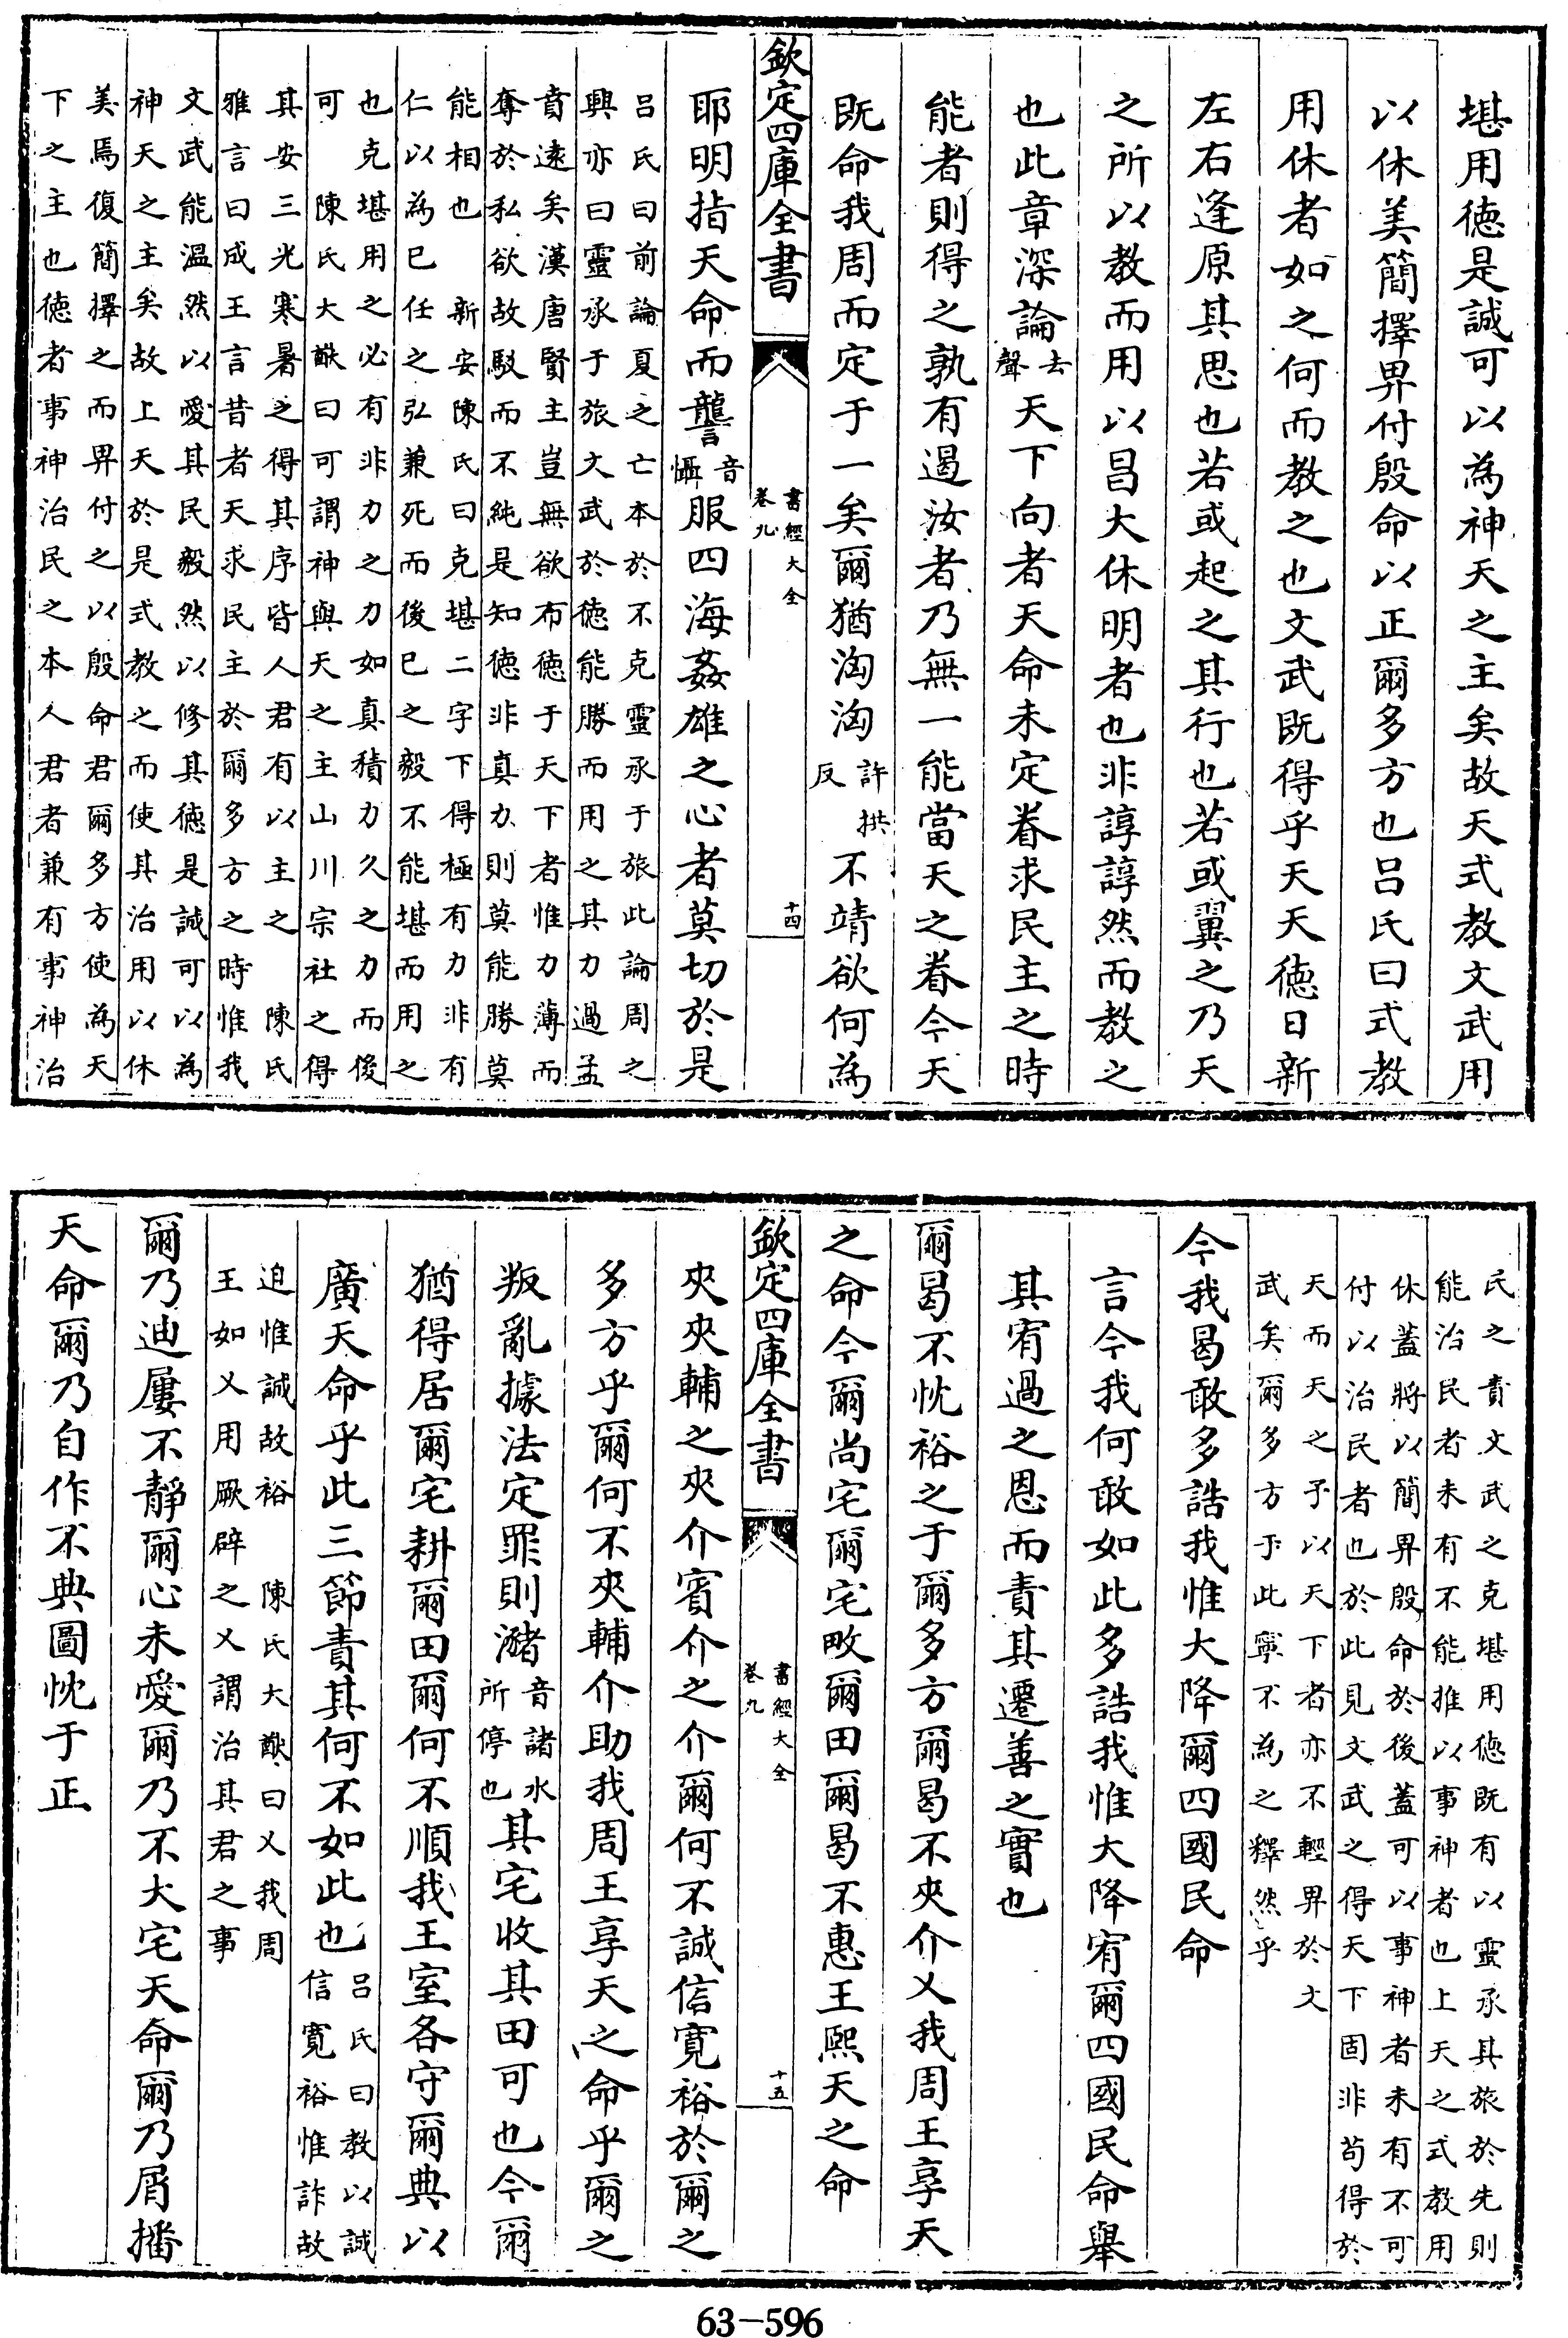 堪用徳是誠可以為神天之主矣故天式教文武用
以休美簡擇畀付殷命以正爾多方也呂氏曰式教
用休者如之何而教之也文武既得乎天天徳日新
左右逢原其思也若或起之其行也若或翼之乃天
之所以教而用以昌大休明者也非諄諄然而教之
也此章深論去聲天下向者天命未定眷求民主之時
能者則得之孰有遏汝者乃無一能當天之眷今天
既命我周而定于一矣爾猶洶洶許拱反不靖欲何為
欽定四庫全書
書經大全
卷九
十四
耶明指天命而讋音懾服四海姦雄之心者莫切於是
呂氏曰前論夏之亡本於不克靈承于旅此論周之
興亦曰靈承于旅文武於徳能勝而用之其力過孟
賁遠矣漢唐賢主豈無欲布徳于天下者惟力薄而
奪於私欲故駁而不純是知徳非真力則莫能勝莫
能相也 新安陳氏曰克堪二字下得極有力非有
仁以為已任之弘兼死而後已之毅不能堪而用之
也克堪用之必有非力之力如真積力久之力而後
可 陳氏大猷曰可謂神與天之主山川宗社之得
其安三光寒暑之得其序皆人君有以主之 陳氏
雅言曰成王言昔者天求民主於爾多方之時惟我
文武能溫然以愛其民毅然以修其徳是誠可以為
神天之主矣故上天於是式教之而使其治用以休
美焉復簡擇之而畀付之以殷命君爾多方使為天
下之主也徳者事神治民之本人君者兼有事神治
民之責文武之克堪用徳既有以靈承其旅於先則
能治民者未有不能推以事神者也上天之式教用
休蓋將以簡畀殷命於後蓋可以事神者未有不可
付以治民者也於此見文武之得天下固非苟得於
天而天之予以天下者亦不輕畀於文
武矣爾多方于此寧不為之釋然乎
今我曷敢多誥我惟大降爾四國民命
言今我何敢如此多誥我惟大降宥爾四國民命舉
其宥過之恩而責其遷善之實也
爾曷不忱裕之于爾多方爾曷不夾介乂我周王享天
之命今爾尚宅爾宅畋爾田爾曷不惠王熙天之命
欽定四庫全書
書經大全
卷九
十五
夾夾輔之夾介賓介之介爾何不誠信寛裕於爾之
多方乎爾何不夾輔介助我周王享天之命乎爾之
叛亂據法定罪則瀦音諸水所停也其宅收其田可也今爾
猶得居爾宅耕爾田爾何不順我王室各守爾典以
廣天命乎此三節責其何不如此也呂氏曰教以誠信寛裕惟詐故
迫惟誠故裕 陳氏大猷曰乂我周
王如乂用厥辟之乂謂治其君之事
爾乃迪屢不靜爾心未愛爾乃不大宅天命爾乃屑播
天命爾乃自作不典圖忱于正
63-596